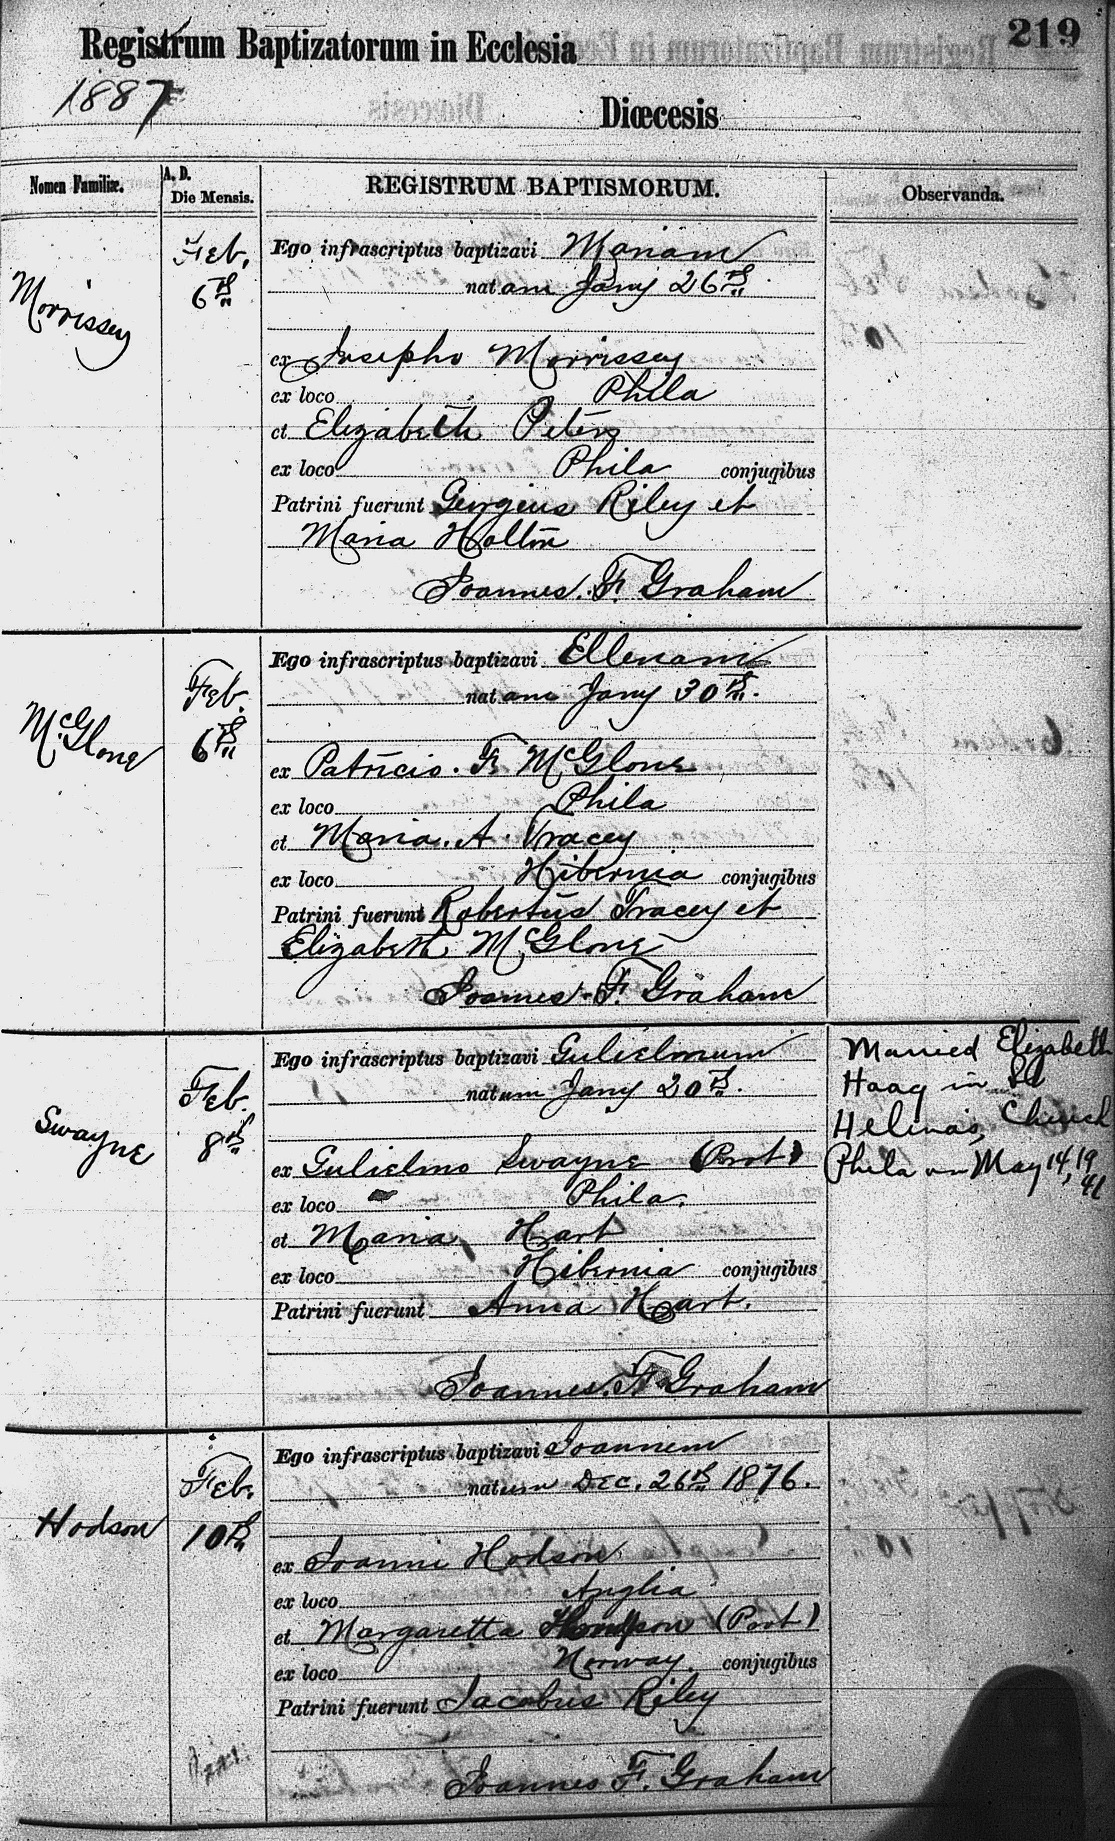 219
Registrum Baptizatorum in Ecclesia
1887
Diœcesis
Nomen Familiæ.
A. D.
Die Mensis.
REGISTRUM BAPTISMORUM.
Observanda.
Morrissey
Feb.
6th
Ego infrascriptus baptizavi Mariam
natam Jany 26th
ex Josepho Morrissey
ex loco Phila
et Elizabeth Peters
ex loco Phila conjugibus
Patrini fuerunt Georgius Riley et
Maria Holton
Joannes. F. Graham
McGlone
Feb.
6th
Ego infrascriptus baptizavi Ellenam
natam Jany 30th.
ex Patricio. F. McGlone
ex loco Phila
et Maria. A. Tracey
ex loco Hibernia conjugibus
Patrini fuerunt Robertus Tracey et
Elizabeth McGlone
Joannes. F. Graham
Swayne
Feb.
8th
Ego infrascriptus baptizavi Gulielmum
natum Jany 20th.
ex Gulielmo Swayne (Prot)
ex loco Phila.
et Maria Hart
ex loco Hibernia conjugibus
Patrini fuerunt Anna Hart.
Joannes. F. Graham
Married Elizabeth
Haag in St
Helena's, Church
Phila on May 14, 19
41
Hodson
Feb.
10th
Ego infrascriptus baptizavi Joannem
natum Dec. 26th 1876.
ex Joanni Hodson
ex loco Anglia
et Margaretta Thompson (Prot)
ex loco Norway conjugibus
Patrini fuerunt Jacobus Riley
Joannes F. Graham